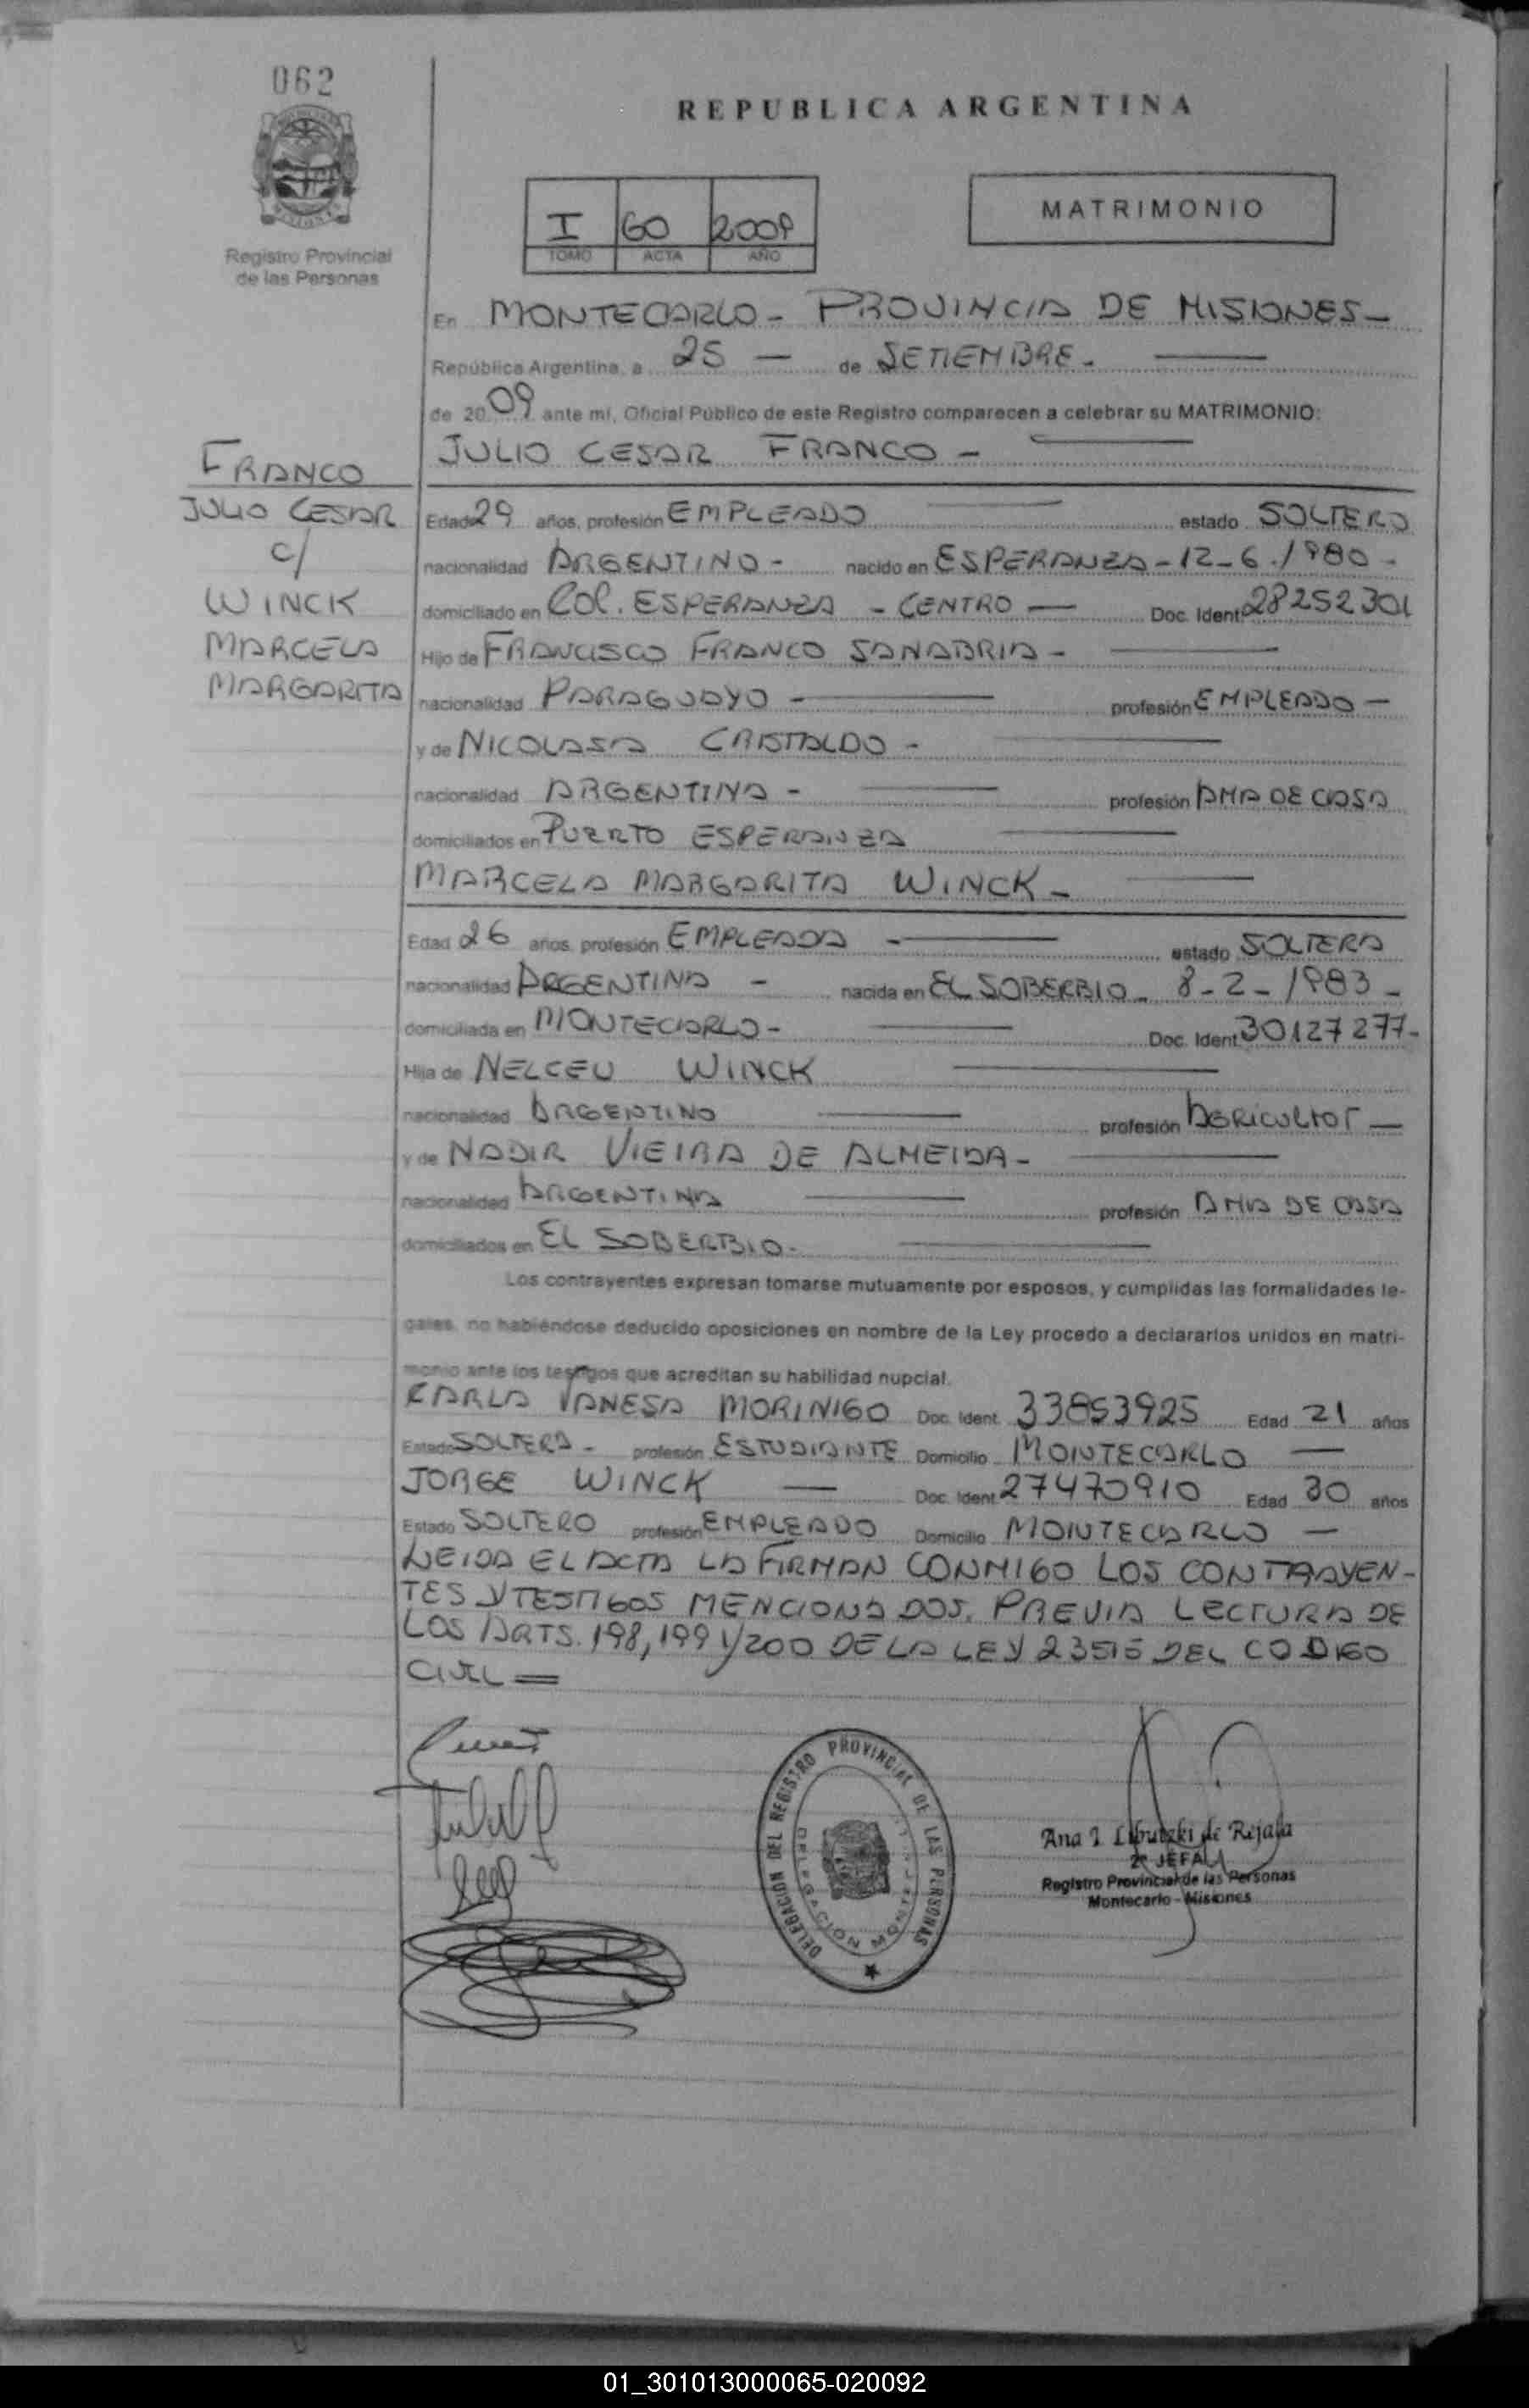 062
REPUBLICA ARGENTINA
I 60 2009
TOMO ACTA AÑO
MATRIMONIO
Registro Provincial
de las Personas
En MONTECARLO - PROVINCIA DE MISIONES -
República Argentina, a 25 — de SETIEMBRE. —
de 2009 ante mi, Oficial Público de este Registro comparecen a celebrar su MATRIMONIO:
JULIO CESAR FRANCO - —
FRANCO
JULIO CESAR
c/
WINCK
MARCELA
MARGARITA
Edad 29 años, profesión EMPLEADO — estado SOLTERO
nacionalidad ARGENTINO - nacido en ESPERANZA - 12-6-1980 -
domiciliado en COL. ESPERANZA - CENTRO — Doc. Ident. 28252301
Hijo de FRANCISCO FRANCO SANABRIA - —
nacionalidad PARAGUAYO - — profesión EMPLEADO —
y de NICOLASA CRISTALDO - —
nacionalidad ARGENTINA - — profesión AMA DE CASA
domiciliados en PUERTO ESPERANZA —
MARCELA MARGARITA WINCK - —
Edad 26 años, profesión EMPLEADA - — estado SOLTERA
nacionalidad ARGENTINA - nacida en EL SOBERBIO - 8-2-1983 -
domiciliada en MONTECARLO - — Doc. Ident. 30127277-
Hija de NELCEU WINCK —
nacionalidad ARGENTINO — profesión AGRICULTOR —
y de NADIR VIEIRA DE ALMEIDA - —
nacionalidad ARGENTINA — profesión AMA DE CASA
domiciliados en EL SOBERBIO. —
Los contrayentes expresan tomarse mutuamente por esposos, y cumplidas las formalidades le-
gales, no habiéndose deducido oposiciones en nombre de la Ley procedo a declararlos unidos en matri-
monio ante los testigos que acreditan su habilidad nupcial.
KARLA VANESA MORINIGO Doc. Ident. 33853925 Edad 21 años
Estado SOLTERA - profesión ESTUDIANTE Domicilio MONTECARLO —
JORGE WINCK — Doc. Ident. 27470910 Edad 30 años
Estado SOLTERO profesión EMPLEADO Domicilio MONTECARLO —
LEIDA EL ACTA LA FIRMAN CONMIGO LOS CONTRAYEN-
TES Y TESTIGOS MENCIONADOS. PREVIA LECTURA DE
LOS ARTS. 198, 199 y 200 DE LA LEY 23515 DEL CODIGO
CIVIL =
DELEGACION DEL REGISTRO PROVINCIAL DE LAS PERSONAS
DELEGACION
Ana I. Libutzki de Rejala
2ª JEFA
Registro Provincial de las Personas
Montecarlo - Misiones
01_301013000065-020092